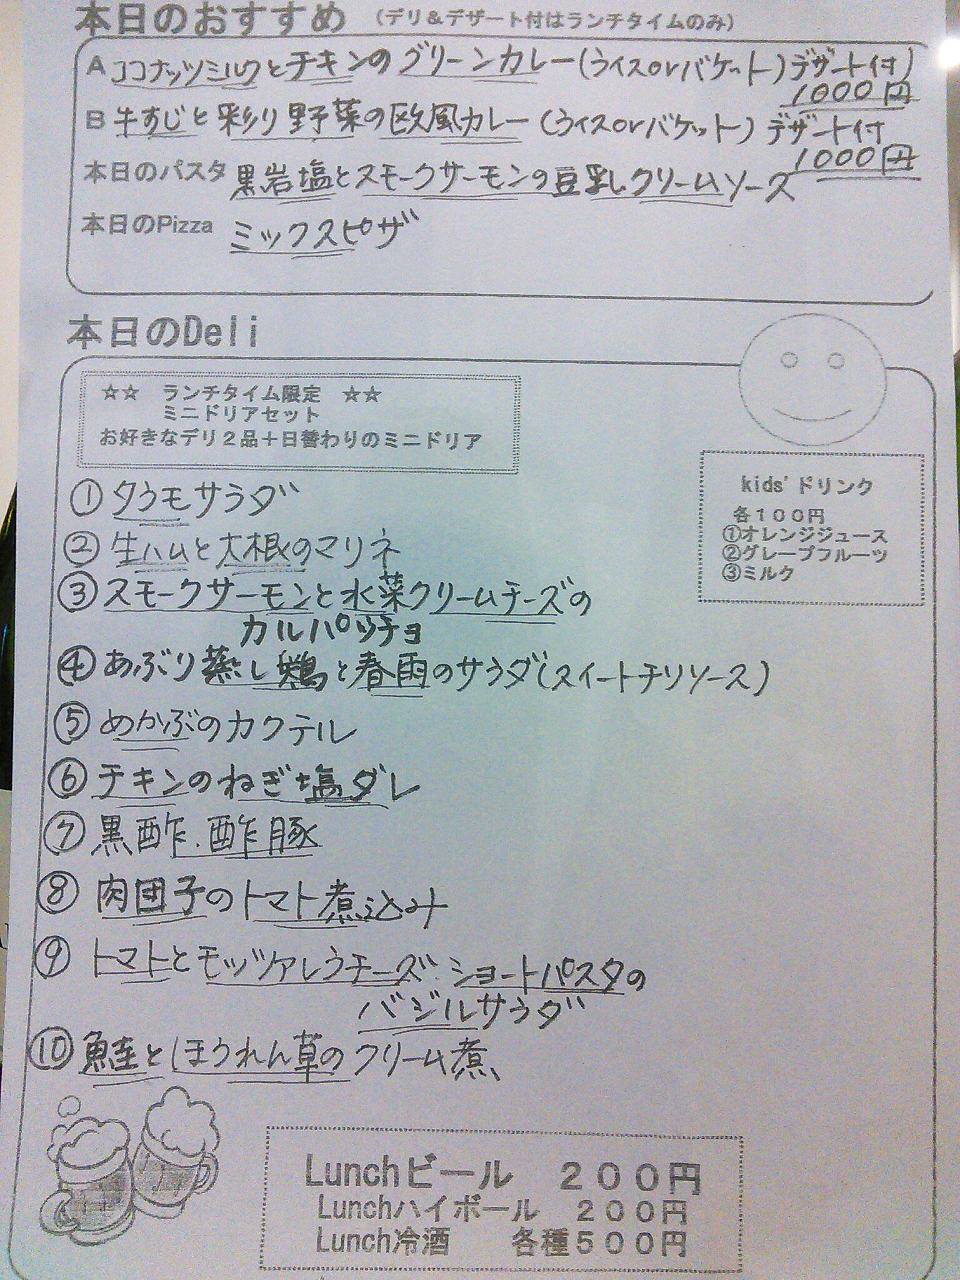 本日のおすすめ (デリ＆デザート付はランチタイムのみ)
A ココナッツミルクとチキンのグリーンカレー(ライスorバケット)デザート付)
1000円
B 牛すじと彩り野菜の欧風カレー(ライスorバケット) デザート付
1000円
本日のパスタ 黒岩塩とスモークサーモンの豆乳クリームソース
本日のPizza ミックスピザ
本日のDeli
☆☆ ランチタイム限定 ☆☆
ミニドリアセット
お好きなデリ２品＋日替わりのミニドリア
kids' ドリンク
各１００円
①オレンジジュース
②グレープフルーツ
③ミルク
① タウモサラダ
② 生ハムと大根のマリネ
③ スモークサーモンと水菜クリームチーズの
カルパッチョ
④ あぶり蒸し鶏と春雨のサラダ(スイートチリソース)
⑤ めかぶのカクテル
⑥ チキンのねぎ塩ダレ
⑦ 黒酢.酢豚
⑧ 肉団子のトマト煮込み
⑨ トマトとモッツァレラチーズ.ショートパスタの
バジルサラダ
⑩ 鮭とほうれん草のクリーム煮
Lunchビール ２００円
Lunchハイボール ２００円
Lunch冷酒 各種５００円